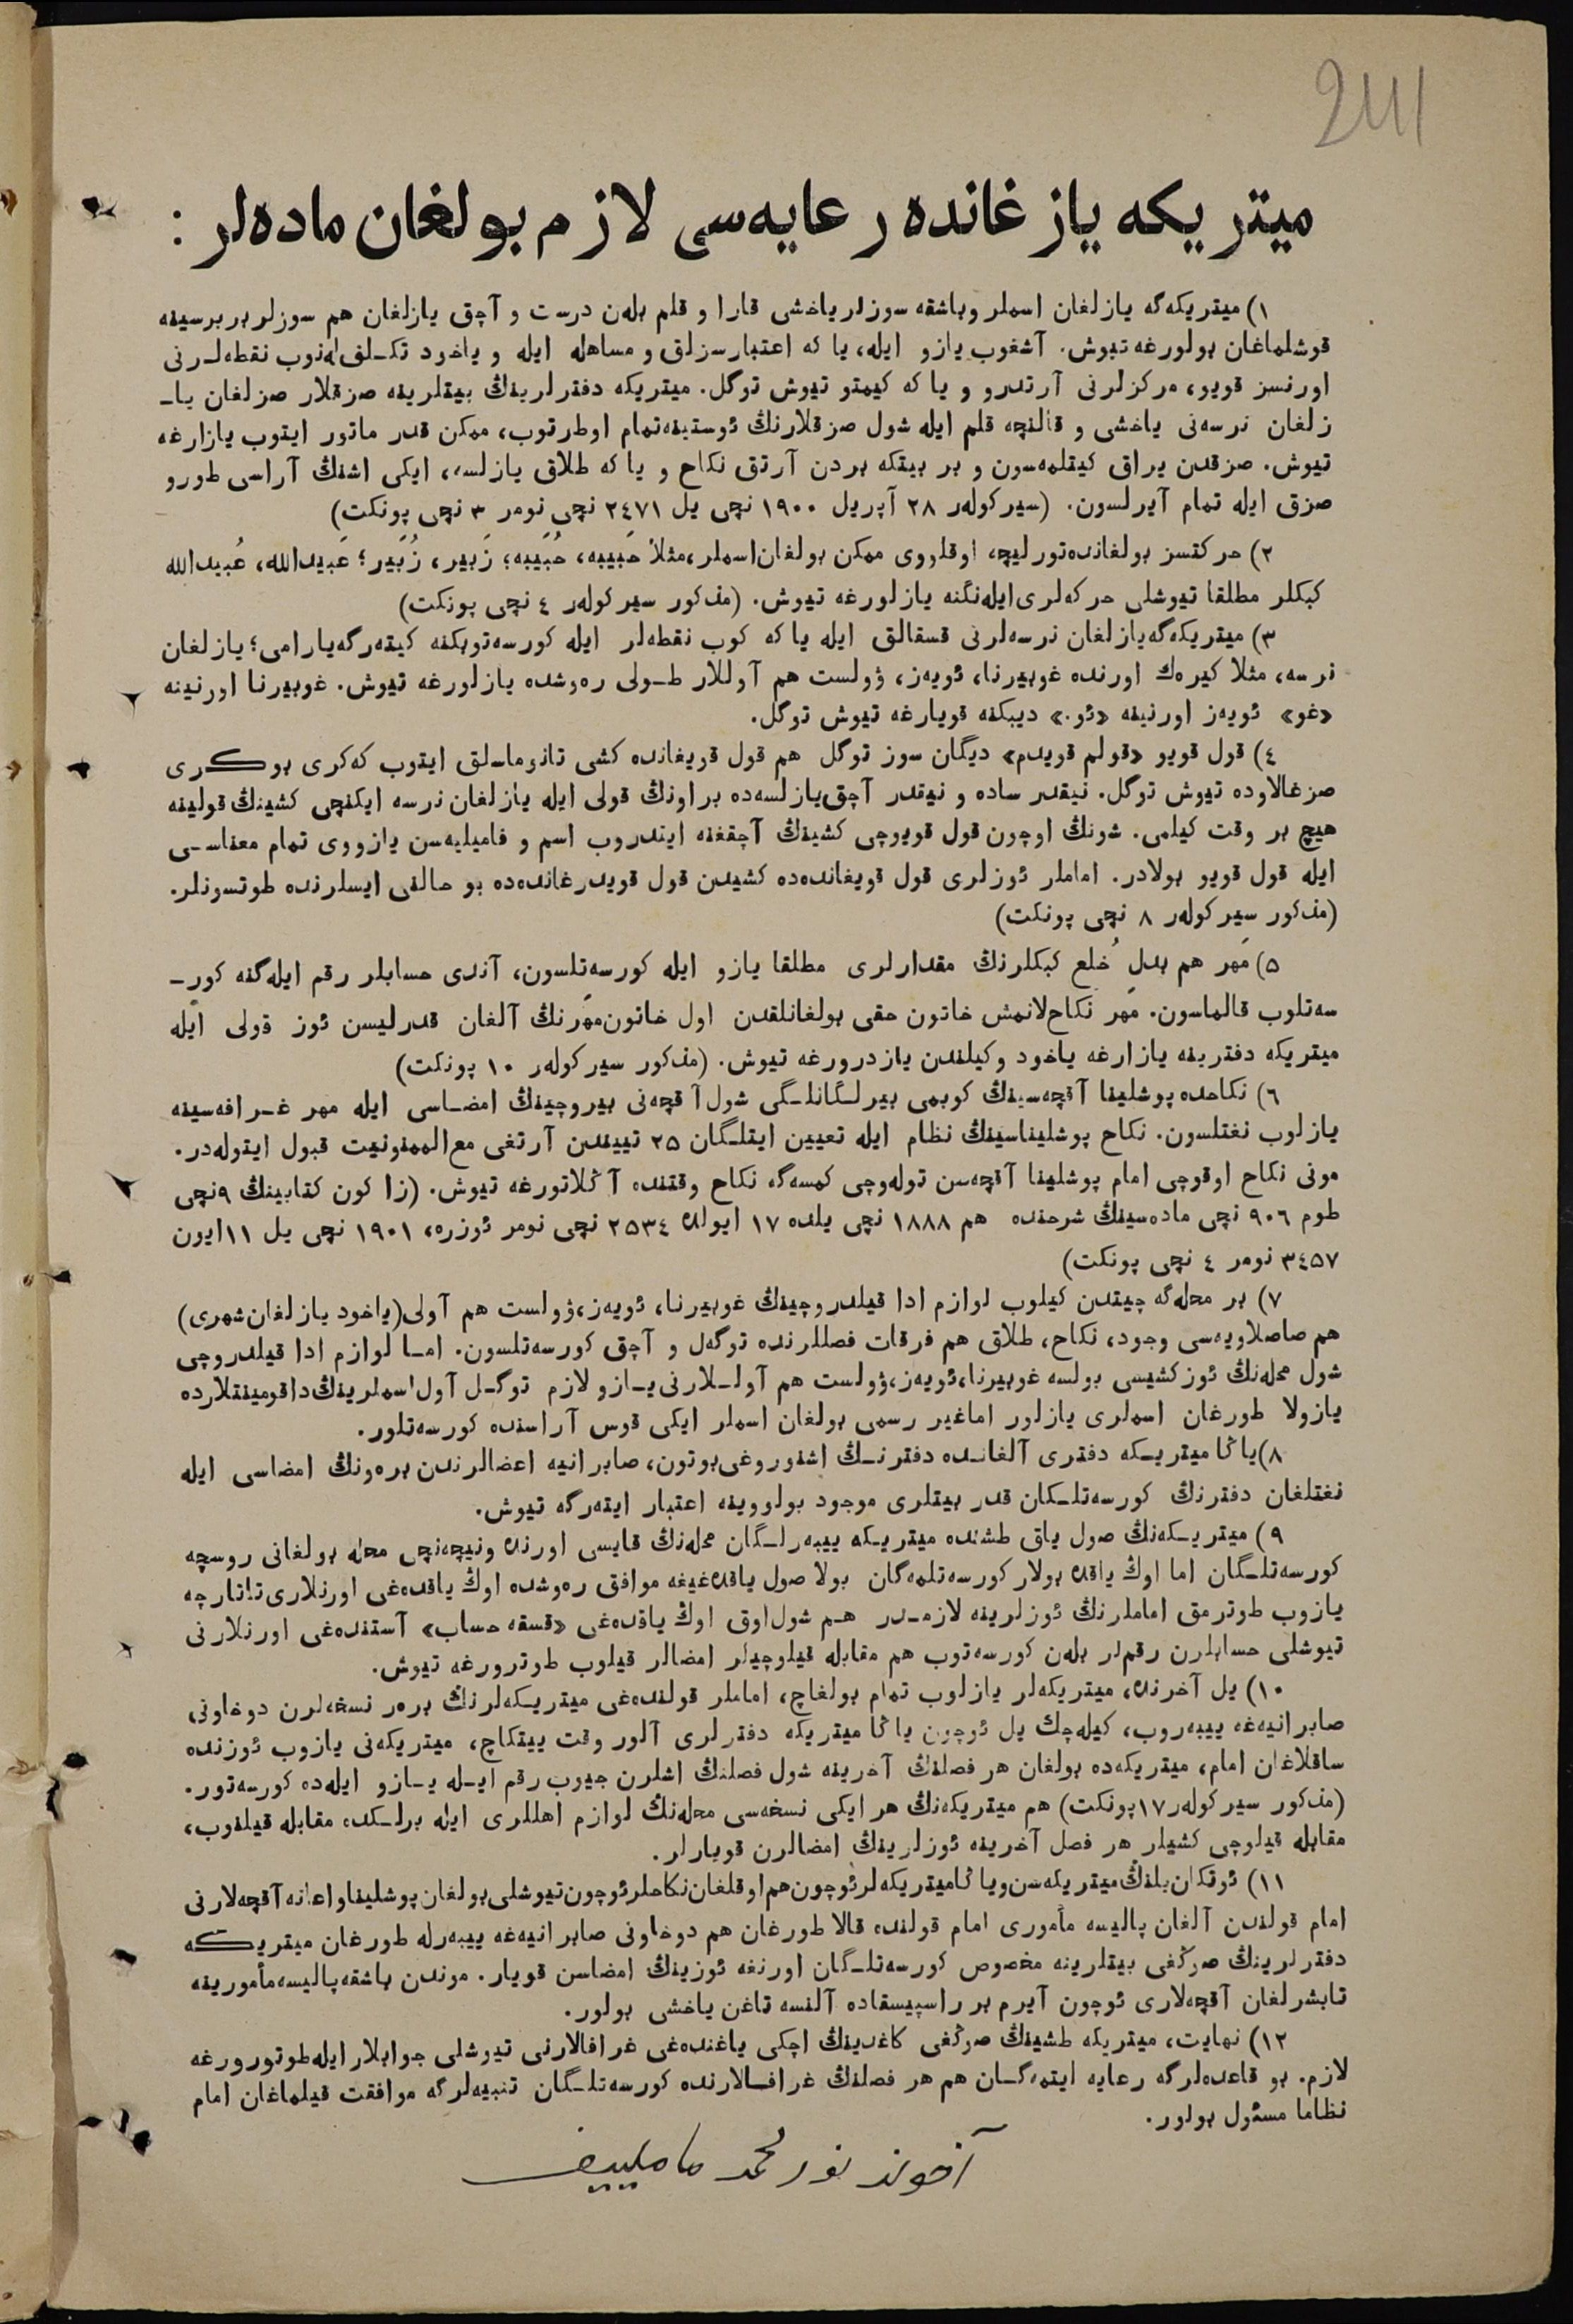 241
ميتريكه يازغانده رعايه‌سى لازم بولغان ماده‌لر :
١) ميتريكه‌گه يازلغان اسملر وباشقه سوزلر ياخشى قارا و قلم بله‌ن درست و آچق يازلغان هم سوزلر بربرسينه
قوشلماغان بولورغه تيوش. آشغوب يازو ايله، يا كه اعتبارسزلق و مساهله ايله و ياخود تكـلف له‌نوب نقطه‌لـرنى
اورنسز قويو، مركزلرنى آرتدرو و يا كه كيمتو تيوش توگل. ميتريكه دفترلرينڭ بيتلرينه صزقلار صزلغان يا‍ـ
زلغان نرسه‌نى ياخشى و قالنچه قلم ايله شول صزقلارنڭ ئوستينه‌تمام اوطرتوب، ممكن قدر ماتور ايتوب يازارغه
تيوش. صزقدن يراق كيتلمه‌سون و بر بيتكه بردن آرتق نكاح و يا كه طلاق يازلسه، ايكى اشنڭ آراسى طورو
صزق ايله تمام آيرلسون. (سيركوله‌ر ٢٨ آپريل ١٩٠٠ نچى يل ٢٤٧١ نچى نومر ٣ نچى پونكت)
٢) حركتسز بولغانده‌تورليچه اوقلووى ممكن بولغان اسملر، مثلا حَبيبه، حُبَيبه؛ زَبير، زُبَير؛ عَبيدالله، عُبيدالله
كبكلر مطلقا تيوشلى حركه‌لرى ايله‌نگنه يازلورغه تيوش. (مذكور سيركوله‌ر ٤ نچى پونكت)
٣) ميتريكه‌گه يازلغان نرسه‌لرنى قسقالق ايله يا كه كوب نقطه‌لر ايله كورسه‌توبكنه كيته‌رگه‌يارامى؛ يازلغان
نرسه، مثلا كيره‌ك اورنده غوبيرنا، ئويه‌ز، ۋولست هم آوللار طـولى ره‌وشده يازلورغه تيوش. غوبيرنا اورنينه
«غو» ئويه‌ز اورنينه «ئو.» ديبكنه قويارغه تيوش توگل.
٤) قول قويو «قولم قويدم» ديگان سوز توگل هم قول قويغانده كشى تانوماـلق ايتوب كه‌كرى بوكرى
صزغالاوده تيوش توگل. نيقدر ساده و نيقدر آچق يازلسه‌ده براونڭ قولى ايله يازلغان نرسه ايكنچى كشينڭ قولينه
هيچ بر وقت كيلمى. شونڭ اوچون قول قويوچى كشينڭ آچقغنه ايتدروب اسم و فاميليه‌سن يازووى تمام معناسـى
ايله قول قويو بولادر. اماملر ئوزلرى قول قويغانده‌ده كشيدن قول قويدرغانده‌ده بو حالنى ايسلرنده طوتسونلر.
(مذكور سيركوله‌ر ٨ نچى پونكت)
٥) مَهر هم بدلِ خُلع كبكلرنڭ مقدارلرى مطلقا يازو ايله كورسه‌تلسون، آندى حسابلر رقم ايله‌گنه كور‍ـ
سه‌تلوب قالماسون. مَهر نكاح‌لانمش خاتون حقى بولغانلقدن اول خاتون‌مَهرنڭ آلغان قدرليسن ئوز قولى ايله
ميتريكه دفترينه يازارغه ياخود وكيلندن يازدرورغه تيوش. (مذكور سيركوله‌ر ١٠ پونكت)
٦) نكاحده پوشلينا آقچه‌سينڭ كوبمى بيرلـگانلـگى شول آقچه‌نى بيروچينڭ امضـاسى ايله مهر غـرافه‌سينه
يازلوب نغتلسون. نكاح پوشليناسينڭ نظام ايله تعيين ايتلـگان ٢٥ تييندن آرتغى مع‌الممنونيت قبول ايتوله‌در.
مونى نكاح اوقوچى امام پوشلينا آقچه‌سن توله‌وچى كمسه‌گه نكاح وقتنده آڭلاتورغه تيوش. (زا كون كتابينڭ ٩نچى
طوم ٩٠٦ نچى ماده‌سينڭ شرحنده هم ١٨٨٨ نچى يلده ١٧ ايولده ٢٥٣٤ نچى نومر ئوزره، ١٩٠١ نچى يل ١١ايون
٣٤٥٧ نومر ٤ نچى پونكت)
٧) بر محله‌گه چيتدن كيلوب لوازم ادا قيلدروچينڭ غوبيرنا، ئويه‌ز،ۋولست هم آولى(ياخود يازلغان‌شهرى)
هم صاصلاويه‌سى وجود، نكاح، طلاق هم فرقات فصللرنده توگه‌ل و آچق كورسه‌تلسون. امـا لوازم ادا قيلدروچى
شول محله‌نڭ ئوز كشيسى بولسه غوبيرنا،ئويه‌ز،ۋولست هم آولـلارنى يـازو لازم توگـل آول اسملرينڭ داقومينتلارده
يازولا طورغان اسملرى يازلور اماغير رسمى بولغان اسملر ايكى قوس آراسنده كورسه‌تلور.
٨)ياڭا ميتريـكه دفترى آلغانـده دفترنـڭ اشنوروغى‌بوتون، صابرانيه اعضالرندن بره‌ونڭ امضاسى ايله
نغتلغان دفترنڭ كورسه‌تلـكان قدر بيتلرى موجود بولووينه اعتبار ايته‌رگه تيوش.
٩) ميتريـكه‌نڭ صول ياق طشنده ميتريـكه ييبه‌رلـگان محله‌نڭ قايسى اورنده ونيچه‌نچى محله بولغانى روسچه
كورسه‌تلـگان اما اوڭ ياقده بولار كورسه‌تلمه‌گان بولا صول ياقده‌غيغه موافق ره‌وشده اوڭ ياقده‌غى اورنلارى تاتارچه
يازوب طوترمق اماملرنڭ ئوزلرينه لازمـدر هـم شول‌اوق اوڭ ياقده‌غى «قسقه حساب» آستنده‌غى اورنلارنى
تيوشلى حسابلرن رقم‌لر بله‌ن كورسه‌توب هم مقابله قيلوچيلر امضالر قيلوب طوترورغه تيوش.
١٠) يل آخرنده، ميتريكه‌لر يازلوب تمام بولغاچ، اماملر قولنده‌غى ميتريـكه‌لرنڭ بره‌ر نسخه‌لرن دوخاونى
صابرانيه‌غه ييبه‌روب، كيله‌چك يل ئوچون ياڭا ميتريكه دفترلرى آلور وقت ييتكاچ، ميتريكه‌نى يازوب ئوزنده
ساقلاغان امام، ميتريكه‌ده بولغان هر فصلنڭ آخرينه شول فصلنڭ اشلرن جيوب رقم ايـله يـازو ايله‌ده كورسه‌تور.
(مذكور سيركوله‌ر ١٧پونكت) هم ميتريكه‌نڭ هر ايكى نسخه‌سى محله‌نڭ لوازم اهللرى ايله برلـكده مقابله قيلنوب،
مقابله قيلوچى كشيلر هر فصل آخرينه ئوزلرينڭ امضالرن قويارلر.
١١) ئوتكان‌يلنڭ ميتريكه‌سن‌وياڭاميتريكه‌لرئوچون‌هم‌اوقلغان‌نكاحلرئوچون‌تيوشلى‌بولغان‌پوشليناواعانه‌آقچه‌لارنى
امام قولندن آلغان پاليسه مأمورى امام قولنده قالا طورغان هم دوخاونى صابرانيه‌غه ييبه‌رله طورغان ميتريكه
دفترلرينڭ صوڭغى بيتلرينه مخصوص كورسه‌تلـگان اورنغه ئوزينڭ امضاسن قويار. موندن باشقه‌پاليسه‌مأمورينه
تابشرلغان آقچه‌لارى ئوچون آيرم بر راسپيسقاده آلنسه تاغن ياخشى بولور.
١٢) نهايت، ميتريكه طشينڭ صوڭغى كاغدينڭ اچكى ياغنده‌غى غرافالارنى تيوشلى جوابلار ايله‌طوتورورغه
لازم. بو قاعده‌لرگه رعايه ايتمه‌گـان هم هر فصلنڭ غرافـالارنده كورسه‌تلـگان تنبيه‌لرگه موافقت قيلماغان امام
نظاما مسئول بولور.
آخوند نور محمد مامليييف